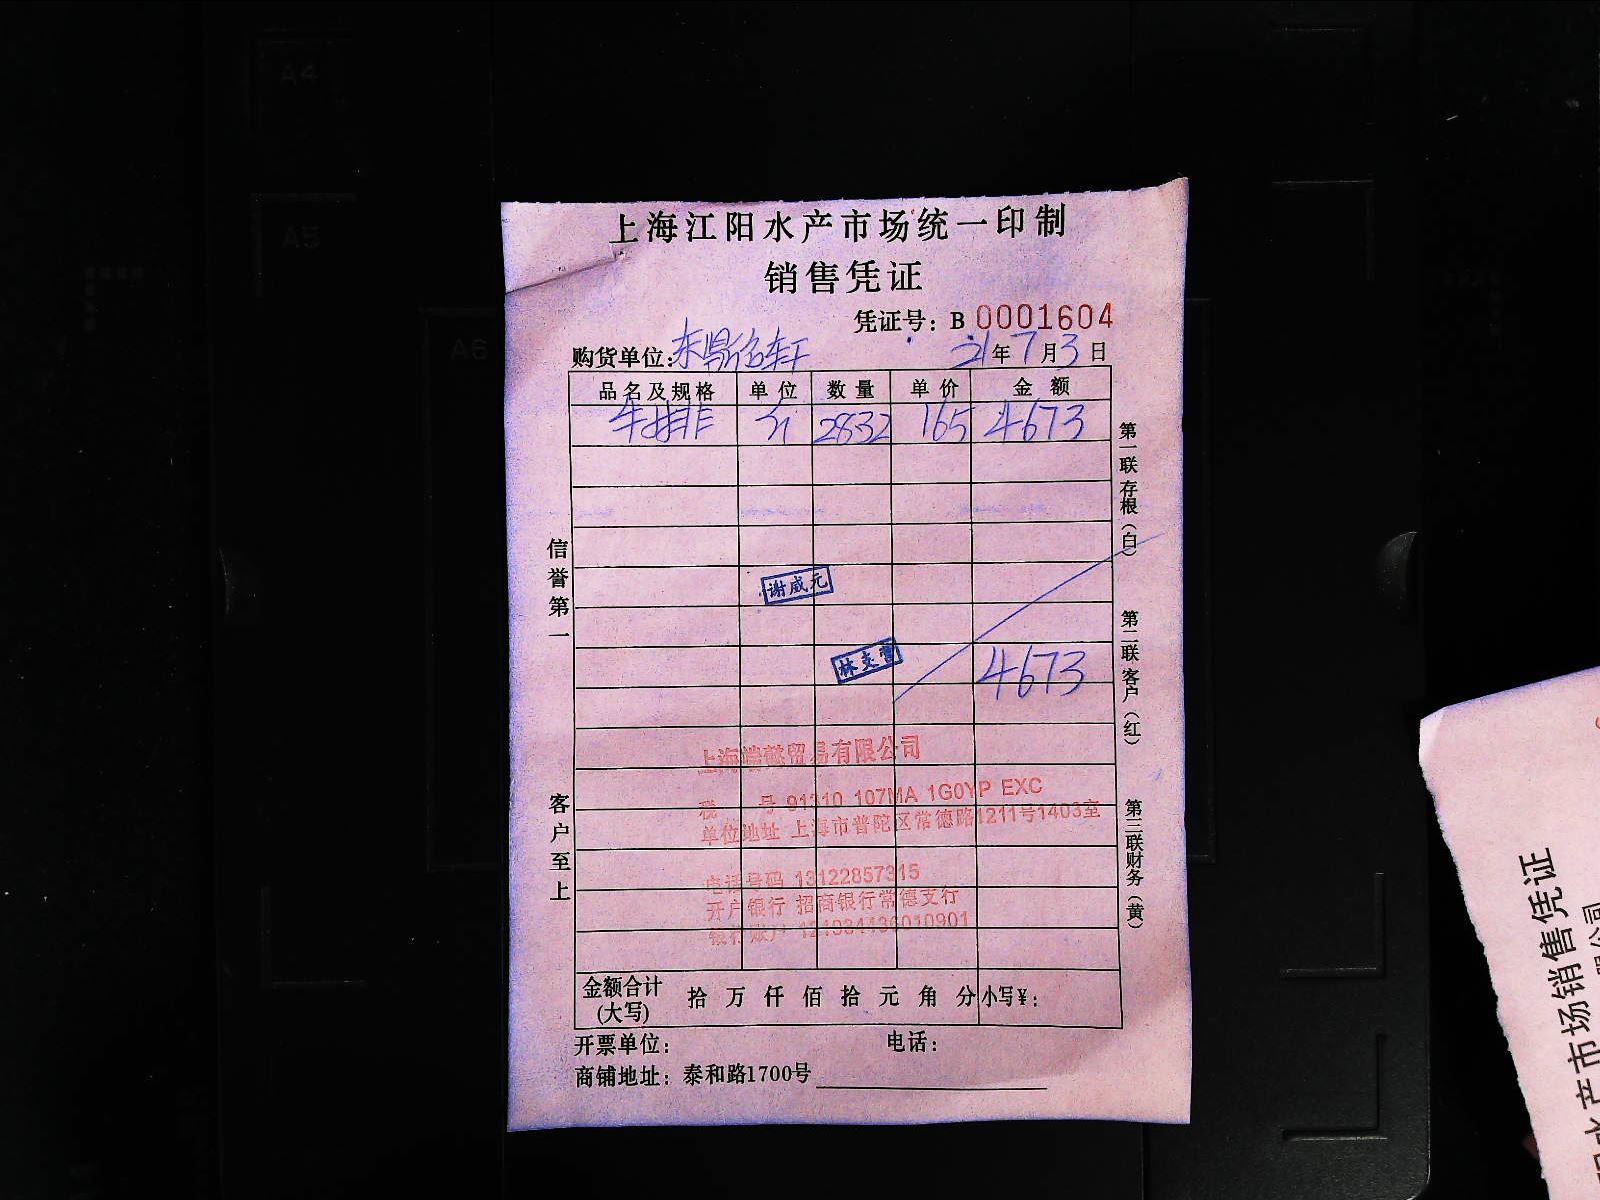 上海江阳水产市场统一印制
销售凭证
凭证号：B 0001604
购货单位： 21年7月3日
品名及规格 单位 数量 单价 金额
牛排 斤 2832 165 4673
谢威元
4673
上海 贸易有限公司
税 号 91310 107MA 1G0YP EXC
单位地址 上海市普陀区常德路1211号1403室
电话号码 13122857315
开户银行 招商银行常德支行
银行账户
金额合计(大写) 拾 万 仟 佰 拾 元 角 分 小写¥：
开票单位： 电话：
商铺地址：泰和路1700号
信誉第一
客户至上
第一联存根（白）
第二联客户（红）
第三联财务（黄）
水产市场销售凭证